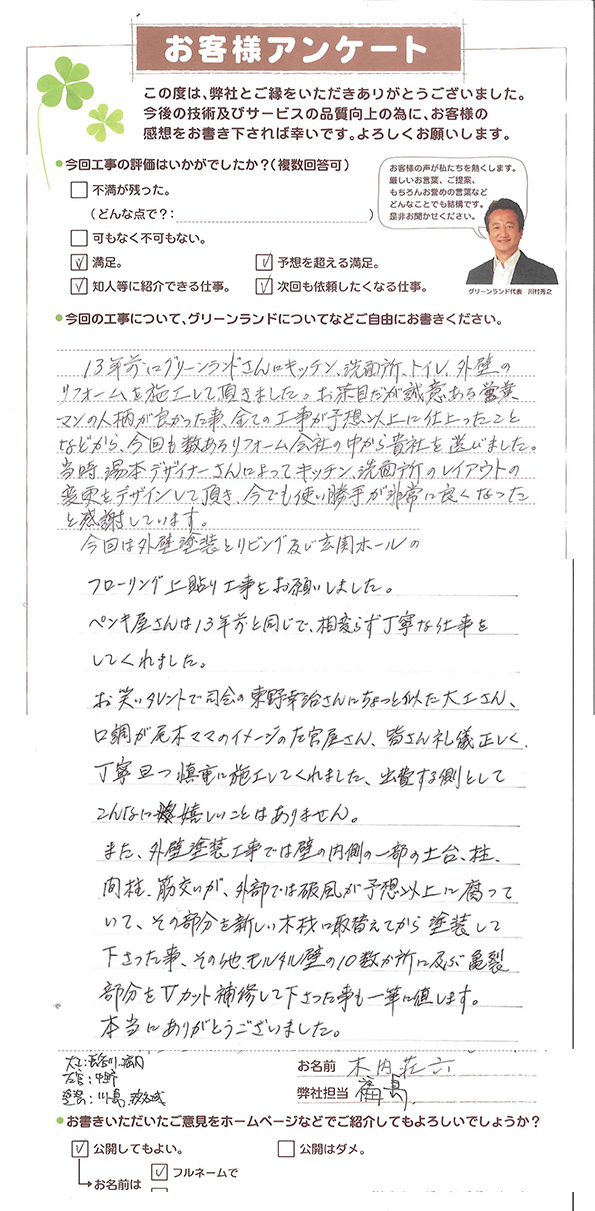 お客様アンケート
この度は、弊社とご縁をいただきありがとうございました。
今後の技術及びサービスの品質向上の為に、お客様の
感想をお書き下されば幸いです。よろしくお願いします。
●今回工事の評価はいかがでしたか？（複数回答可）
不満が残った。
（どんな点で？：　）
可もなく不可もない。
満足。
予想を超える満足。
知人等に紹介できる仕事。
次回も依頼したくなる仕事。
お客様の声が私たちを熱くします。
厳しいお言葉、ご提案、
もちろんお誉めの言葉など
どんなことでも結構です。
是非お聞かせください。
グリーンランド代表　川村秀之
●今回の工事について、グリーンランドについてなどご自由にお書きください。
13年前にグリーンランドさんにキッチン、洗面所、トイレ、外壁の
リフォームを施工して頂きました。お茶目だが誠意ある営業
マンの人柄が良かった事、全ての工事が予想以上に仕上ったこと
などから、今回も数あるリフォーム会社の中から貴社を選びました。
当時、湯本デザイナーさんによってキッチン、洗面所のレイアウトの
変更をデザインして頂き、今でも使い勝手が非常に良くなった
と感謝しています。
今回は外壁塗装とリビング及び玄関ホールの
フローリング上貼り工事をお願いしました。
ペンキ屋さんは13年前と同じで、相変らず丁寧な仕事を
してくれました。
お笑いタレントで司会の東野幸治さんにちょっと似た大工さん、
口調が尾木ママのイメージの左官屋さん、皆さん礼儀正しく、
丁寧且つ慎重に施工してくれました、出費する側として
こんなに嬉しいことはありません。
また、外壁塗装工事では壁の内側の一部の土台、柱、
間柱、筋交いが、外部では破風が予想以上に腐って
いて、その部分を新しい木材に取替えてから塗装して
下さった事、その他、モルタル壁の10数か所に及ぶ亀裂
部分をVカット補修して下さった事も一筆に値します。
本当にありがとうございました。
大工：長谷川、
左官：中野
塗装：川島、
お名前　木内荘六
弊社担当　福島
●お書きいただいたご意見をホームページなどでご紹介してもよろしいでしょうか？
公開してもよい。
公開はダメ。
お名前は
フルネームで